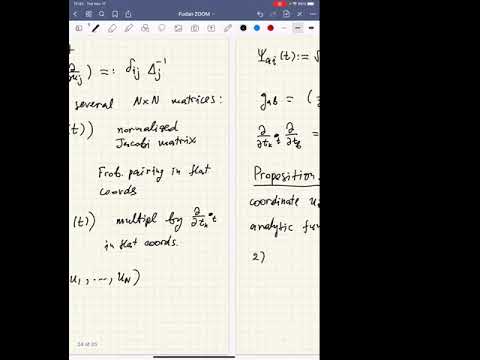 11:43 Tue Nov 17
Fudan ZOOM
∂/∂u_j) =: δ_ij Δ_j^{-1}
several N×N matrices:
(t)) normalized
Jacobi matrix
Frob. pairing in flat
coords
(t)) multipl by ∂/∂t_k •_t
in flat coords.
u_1, ..., u_N)
24 of 25
Ψ_ai (t) := √
g_ab = (
∂/∂t_k •_t ∂/∂t_b =
Proposition
coordinate u
analytic fun
2)